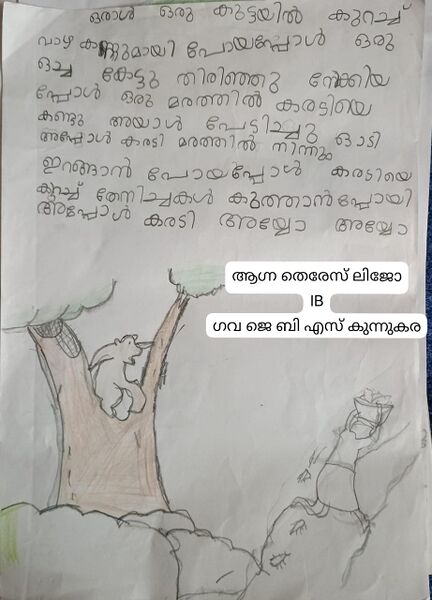 ഒരാൾ ഒരു കുട്ടയിൽ കുറച്ച്
വാഴ കണ്ണുമായി പോയപ്പോൾ ഒരു
ഒച്ച കേട്ടു തിരിഞ്ഞു നോക്കിയ
പ്പോൾ ഒരു മരത്തിൽ കരടിയെ
കണ്ടു അയാൾ പേടിച്ചു ഓടി
അപ്പോൾ കരടി മരത്തിൽ നിന്നും
ഇറങ്ങാൻ പോയപ്പോൾ കരടിയെ
കുറച്ച് തേനിച്ചകൾ കുത്താൻ പോയി
അപ്പോൾ കരടി അയ്യോ അയ്യോ
ആഗ്ന തെരേസ് ലിജോ
IB
ഗവ ജെ ബി എസ് കുന്നുകര